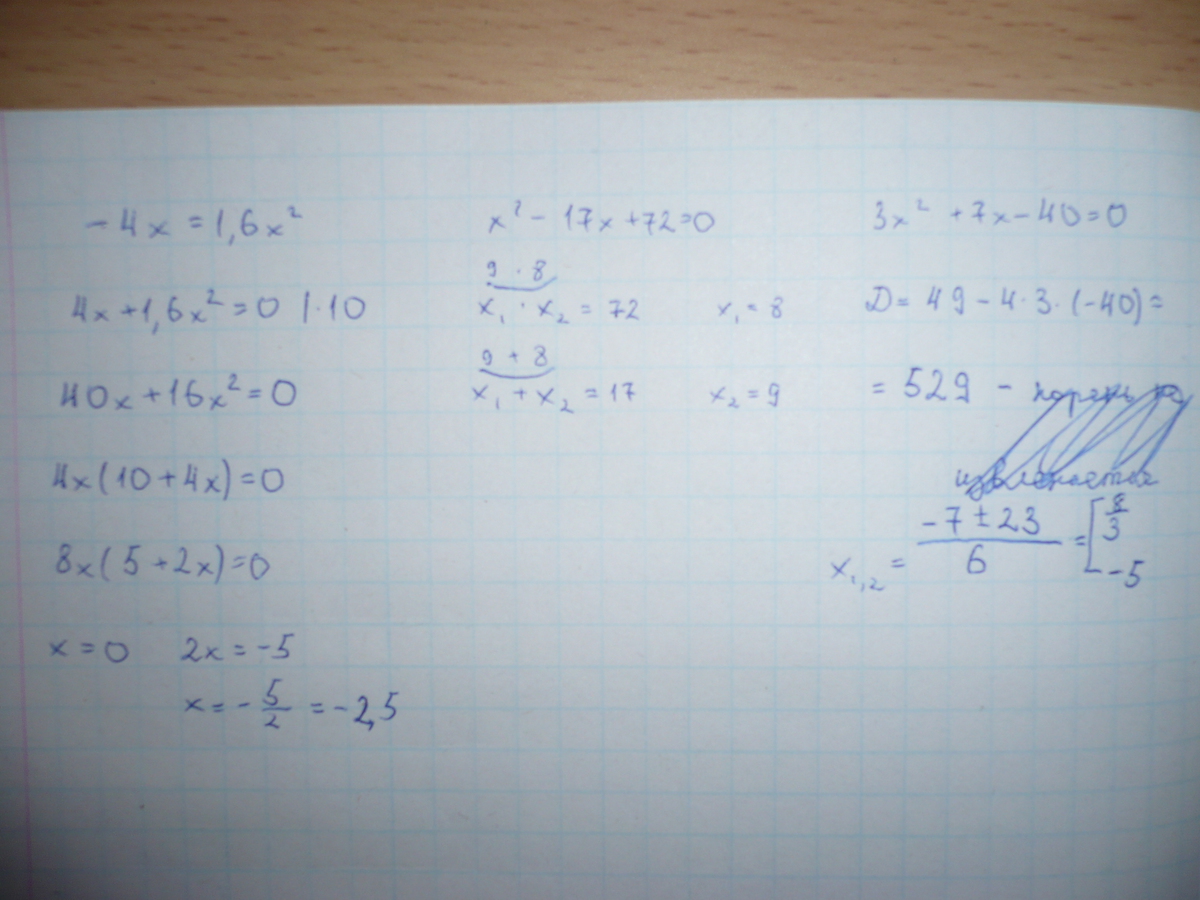 -4x = 1,6x²
4x + 1,6x² = 0 | · 10
40x + 16x² = 0
4x(10 + 4x) = 0
8x(5 + 2x) = 0
x = 0 2x = -5
x = -5/2 = -2,5
x² - 17x + 72 = 0
9 · 8
x₁ · x₂ = 72 x₁ = 8
9 + 8
x₁ + x₂ = 17 x₂ = 9
3x² + 7x - 40 = 0
D = 49 - 4 · 3 · (-40) =
= 529 - корень не
извлекается
x₁,₂ = (-7 ± 23)/6 = [8/3
-5